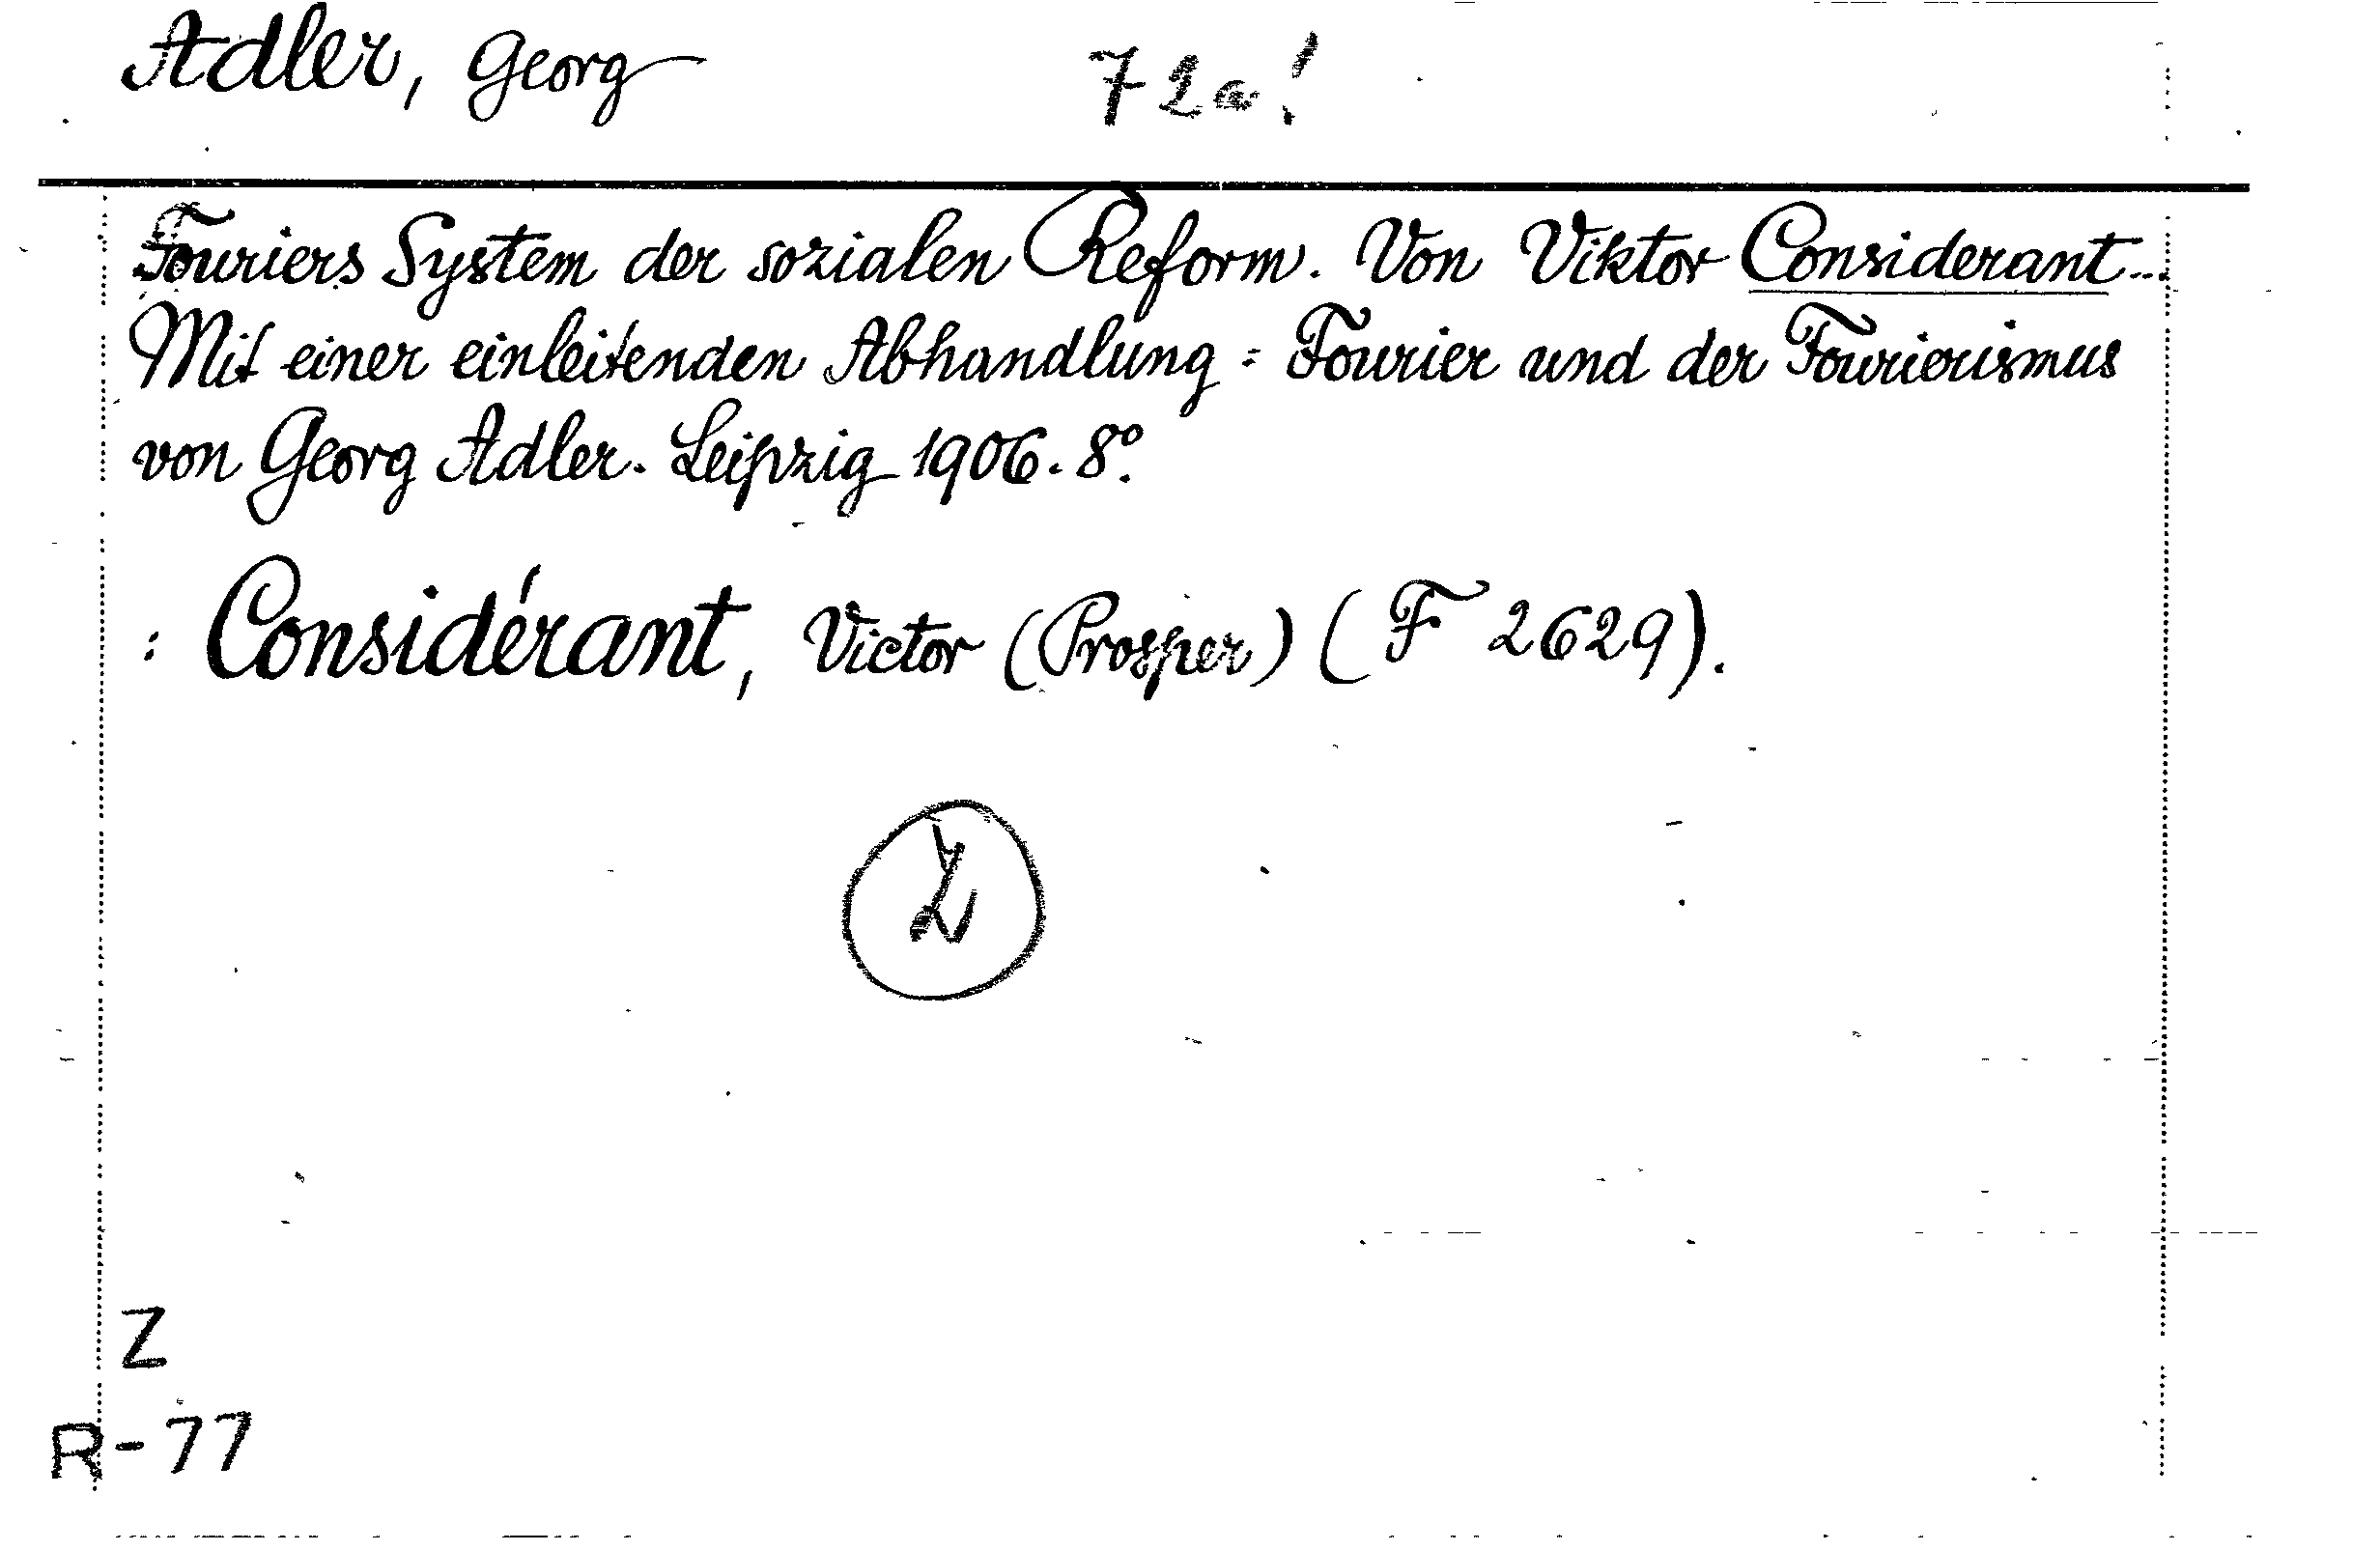 Adler, Georg 72a!
Fouriers System der sozialen Reform. Von Viktor Considerant...
Mit einer einleitenden Abhandlung: Fourier und der Fourierismus
von Georg Adler. Leipzig 1906. 8°.
: Considérant, Victor (Prosper) (F 2629).
Z
R-77